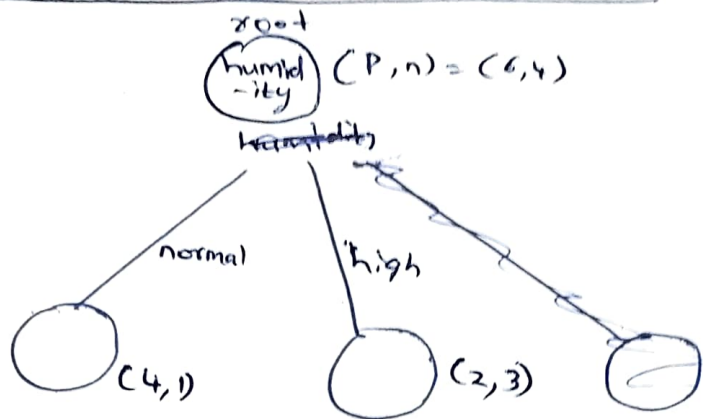 root
humid
-ity
(P, n) = (6, 4)
humidity
normal
high
(4, 1)
(2, 3)